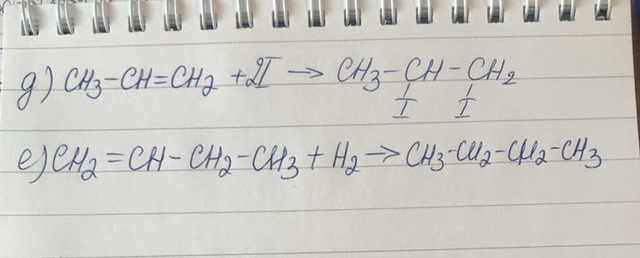 д) CH3-CH=CH2 +2I → CH3-CH-CH2
I I
е) CH2=CH-CH2-CH3 + H2 → CH3-CH2-CH2-CH3